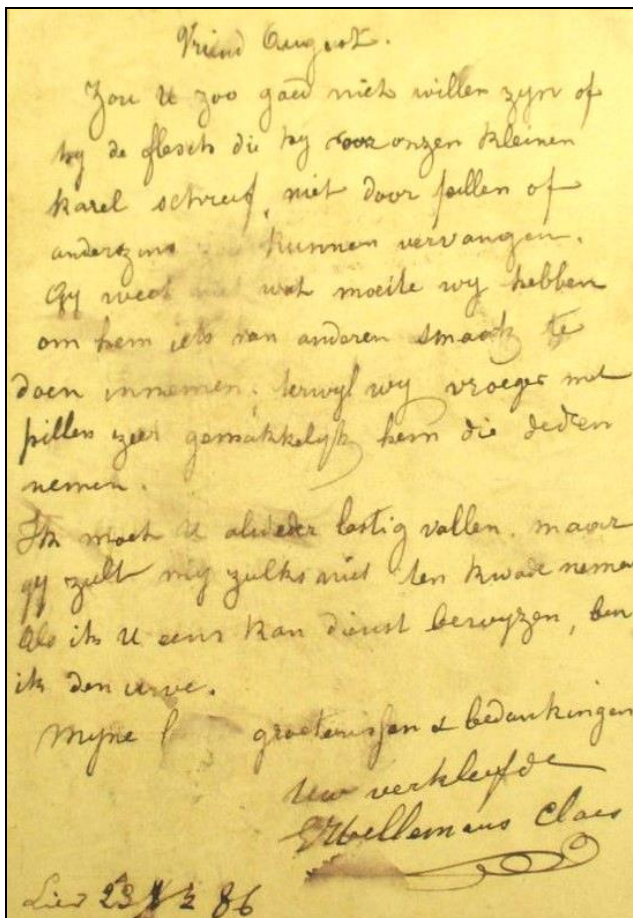 Vriend August.
Zou U zoo goed niet willen zyn of
hy de flesch die hy voor onzen kleinen
karel schreef, niet door pillen of
anderzins kunnen vervangen.
Gy weet wat moeite wy hebben
om hem iets van anderen smaak te
doen innemen. terwyl wy vroeger met
pillen zeer gemakkelijk hem die deden
nemen.
Ik moet U alweder lastig vallen. maar
gy zult my zulks niet ten kwade nemen
Als ik U eens kan dienst bewyzen, ben
ik den uwe.
Myne groetenissen & bedankingen
Uw verkleefde
Hellemans Claes
Lier 23 86